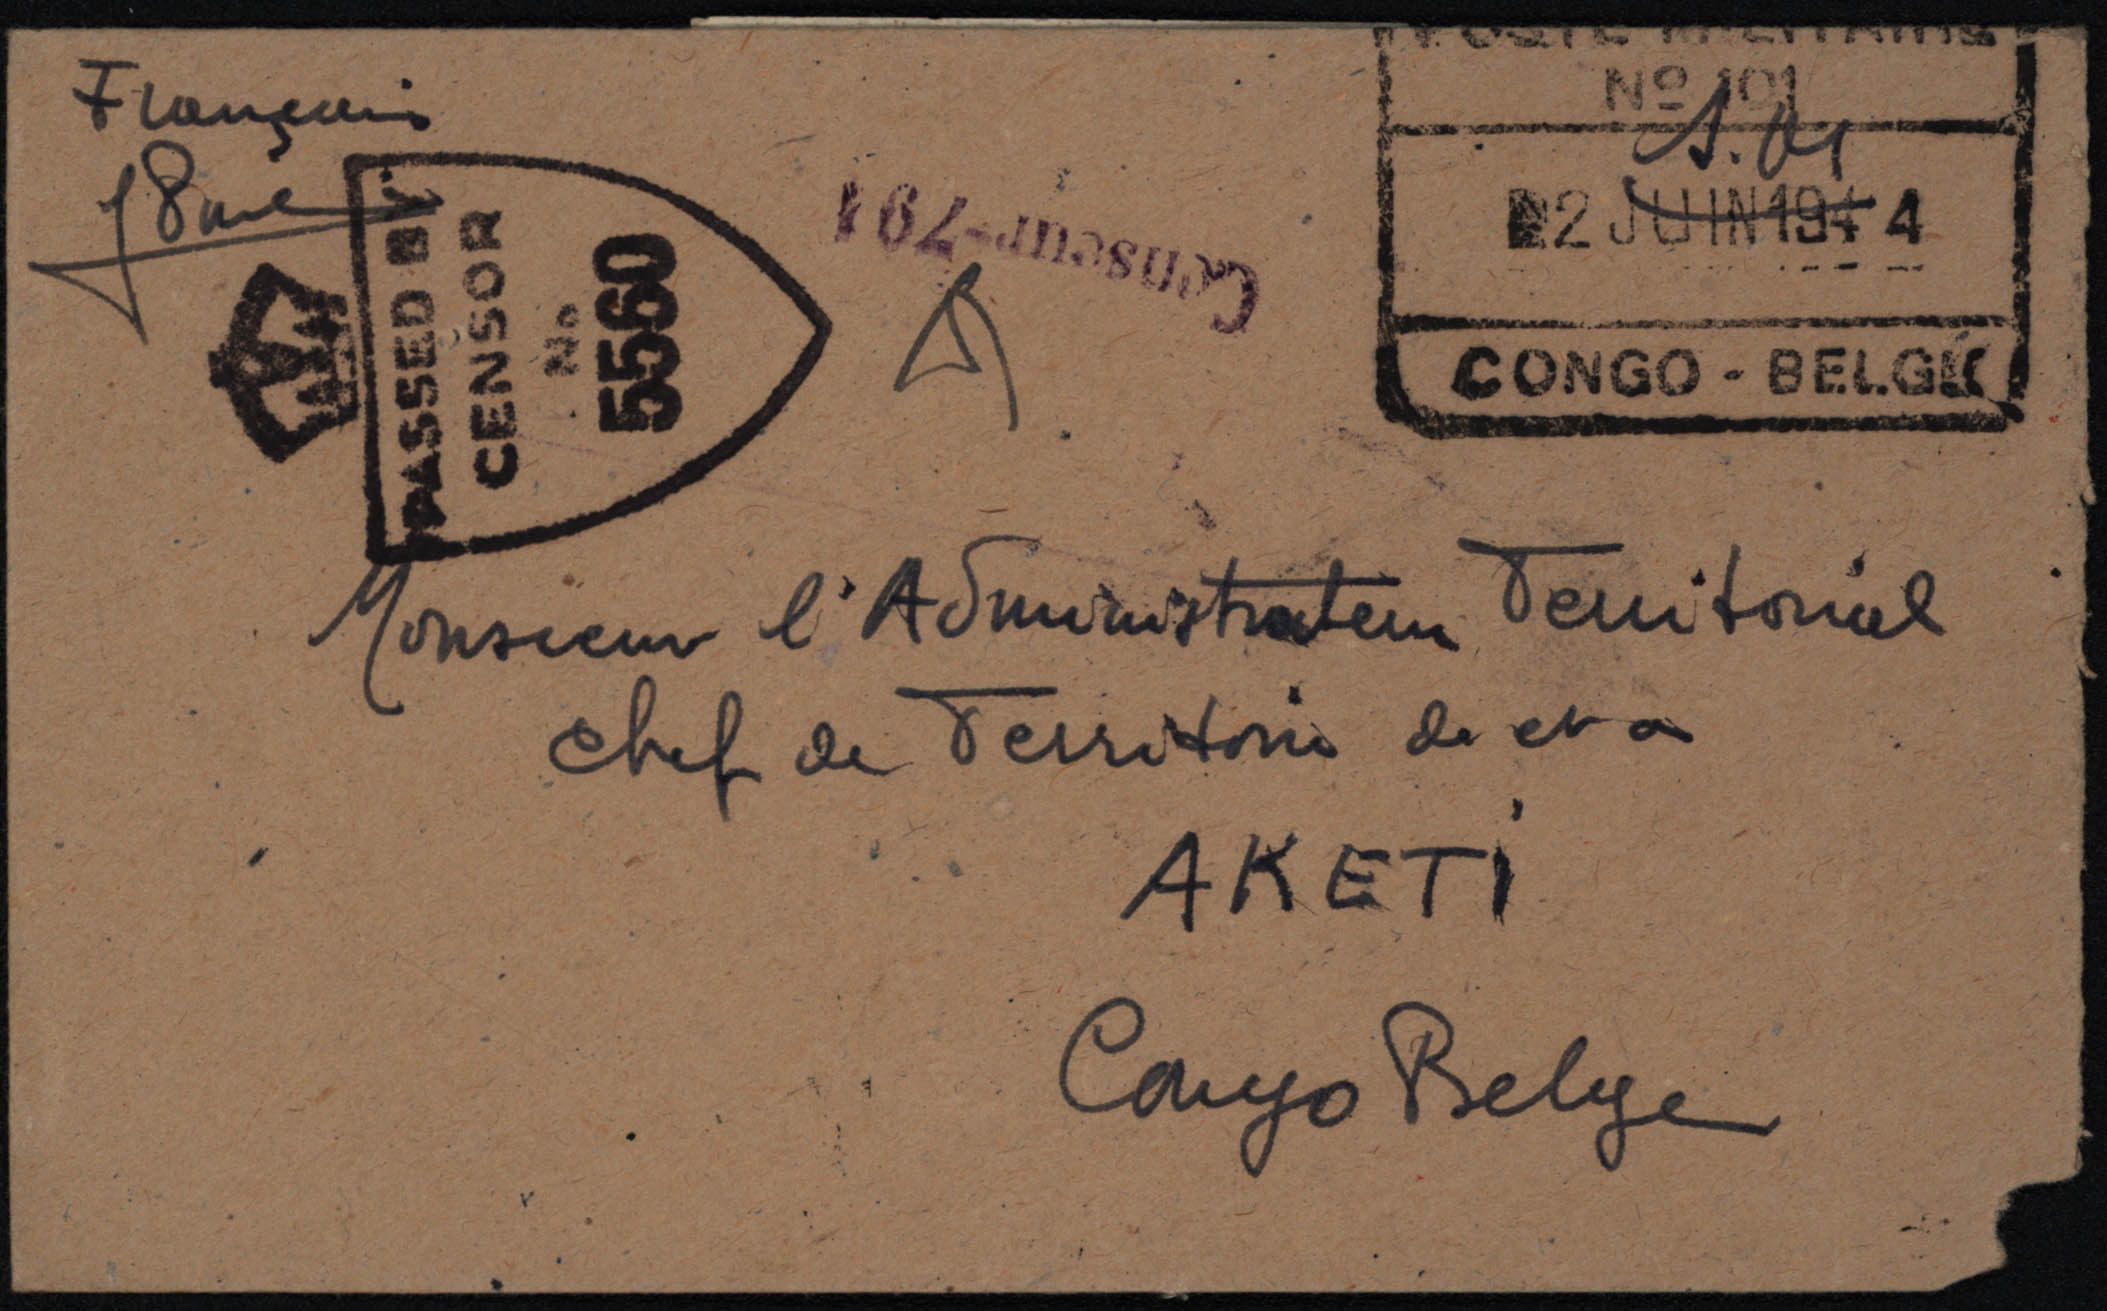 Français
PASSED BY
CENSOR
No.
5560
Censeur-791
POSTE MILITAIRE
Nº 101
S.M
22 JUIN 194 4
CONGO - BELGE
Monsieur l'Administrateur Territorial
chef de Territoire de et a
AKETI
Congo Belge